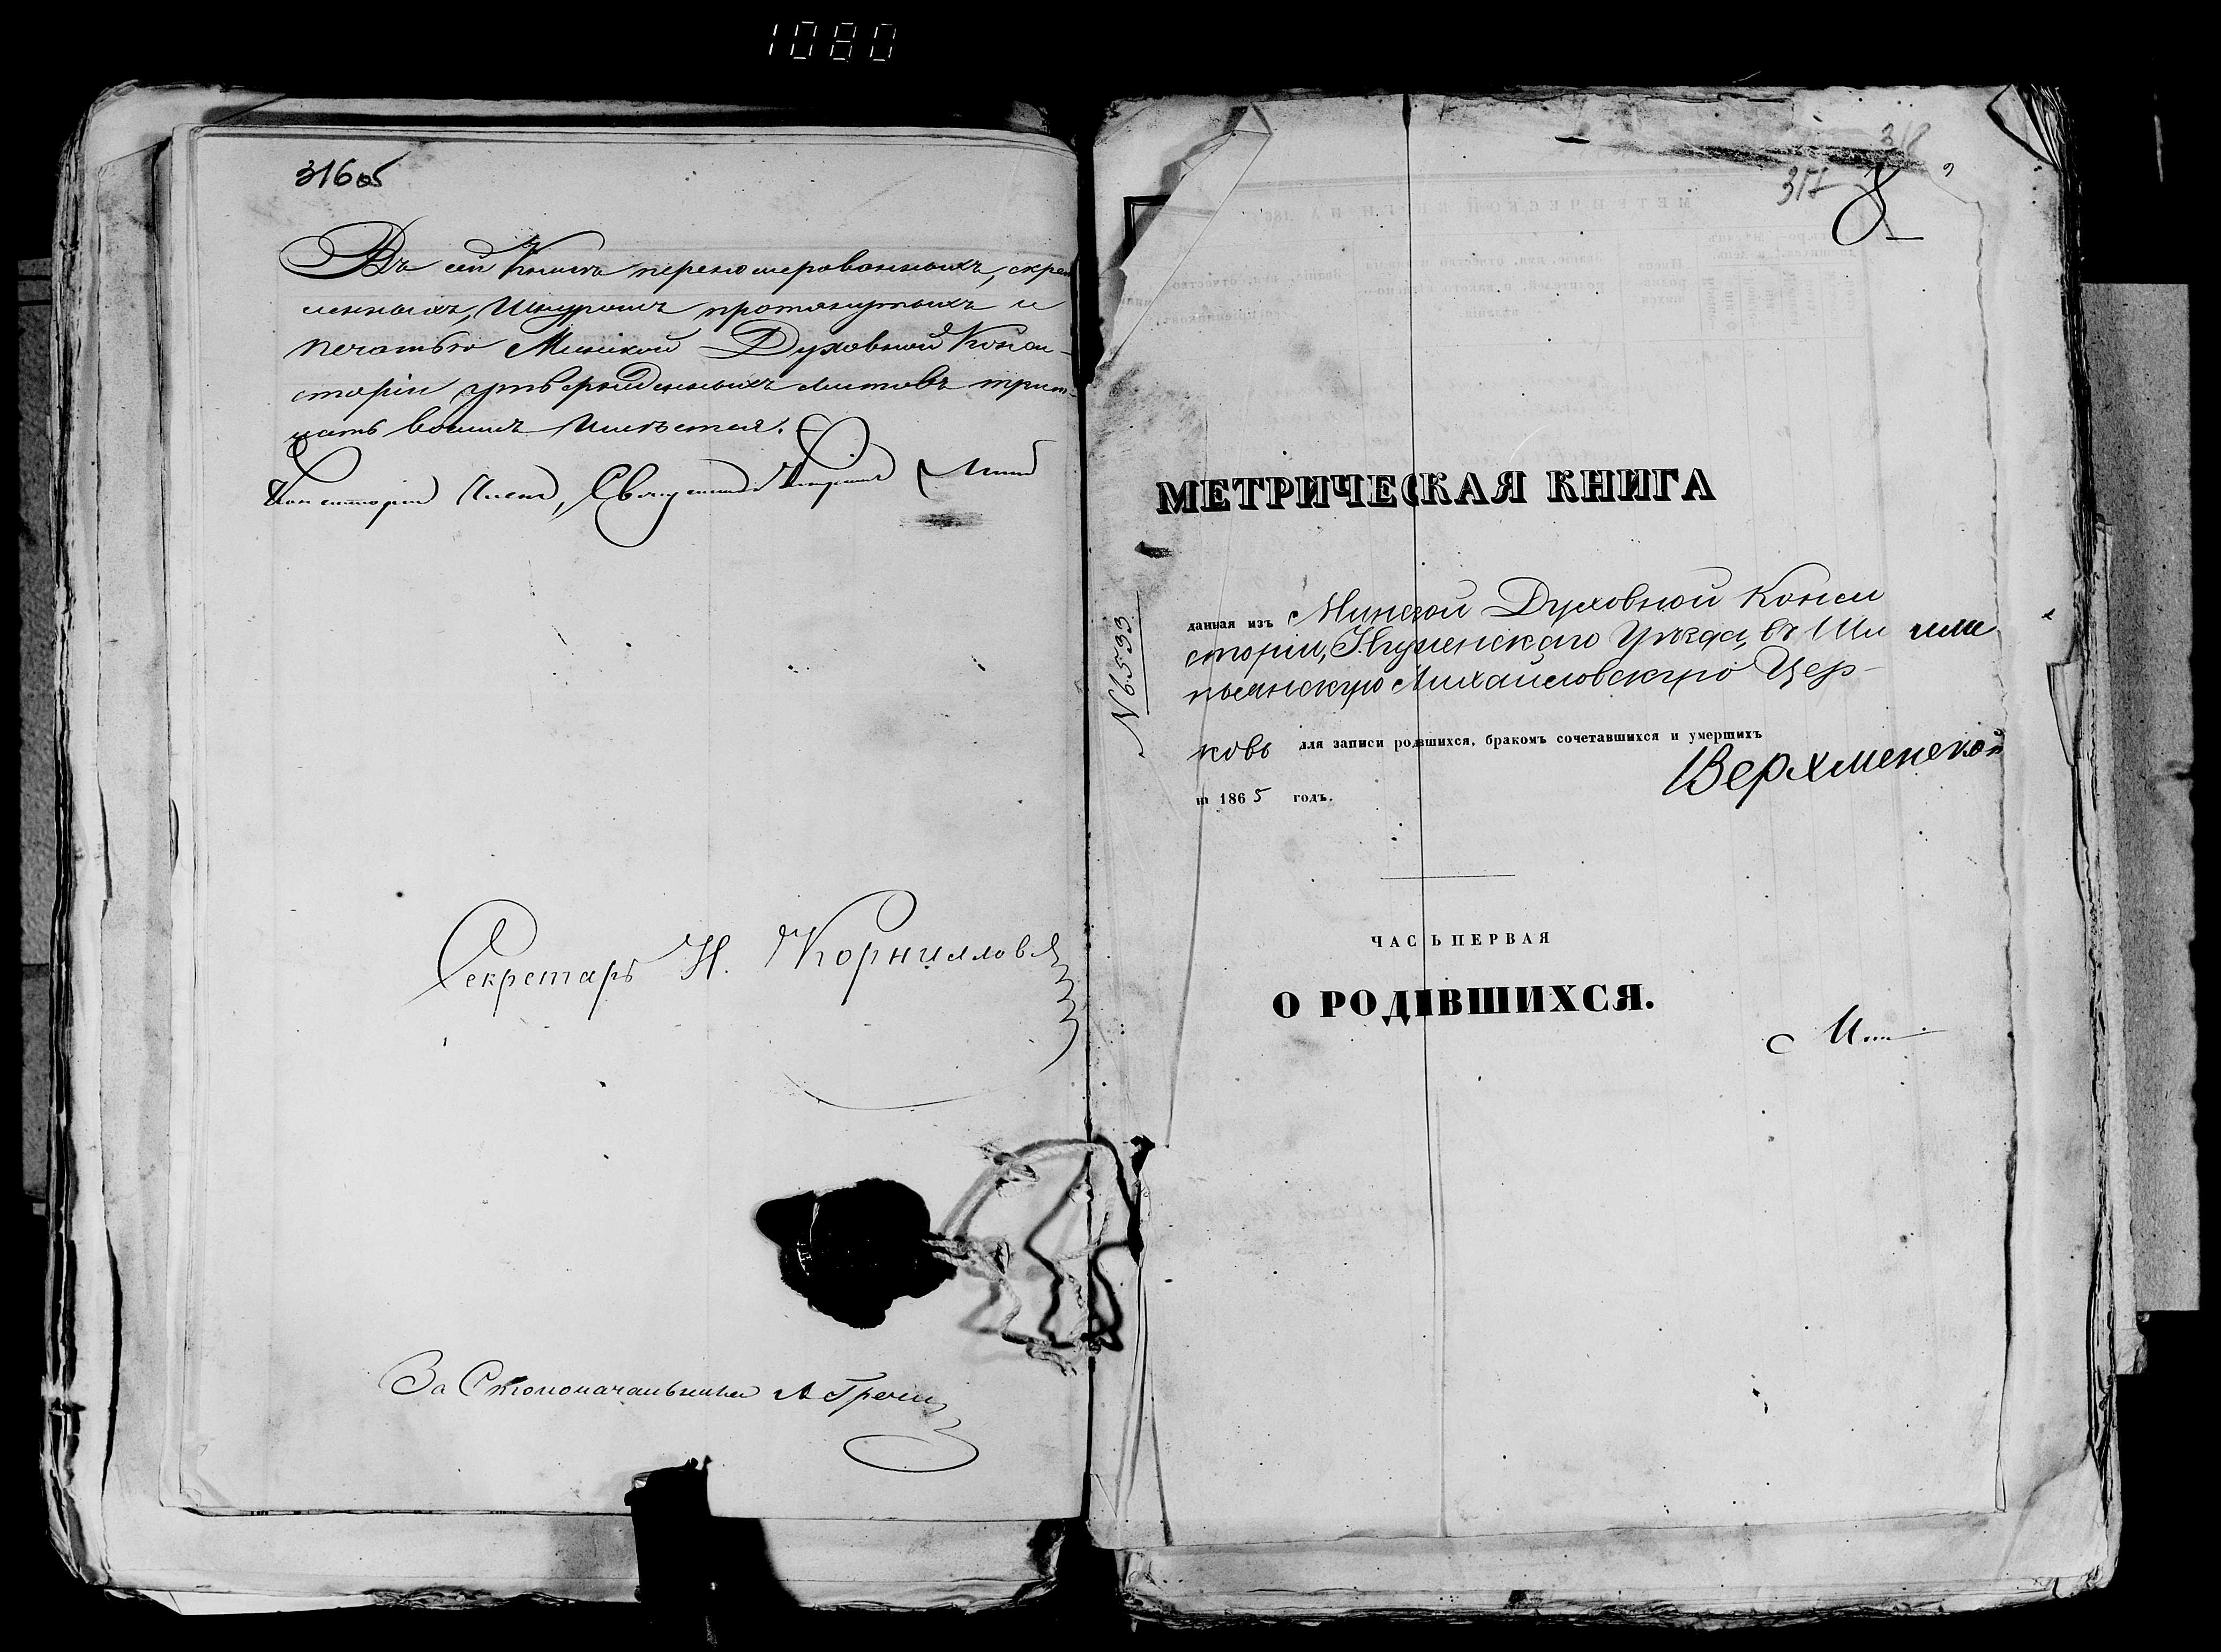 1080
316об
Въ сей Книгѣ перенумерованныхъ, скрѣп
ленныхъ, шнуромъ протянутыхъ и
печатью Минской Духовной Конси-
сторіи утвержденныхъ листовъ трид-
цать восемь имѣется.
Консисторіи Членъ, Священникъ
Секретарь Н. Корниловъ
За Столоначальника А Греч
318
317
8
МЕТРИЧЕСКАЯ КНИГА
данная изъ Минской Духовной Конси
сторіи, Игуменскаго Уѣзда, въ Ши или
пьянскую Михайловскую Цер-
ковь для записи родившихся, бракомъ сочетавшихся и умершихъ
Верхменской
на 1865 годъ.
№6533
ЧАСТЬ ПЕРВАЯ
О РОДИВШИХСЯ.